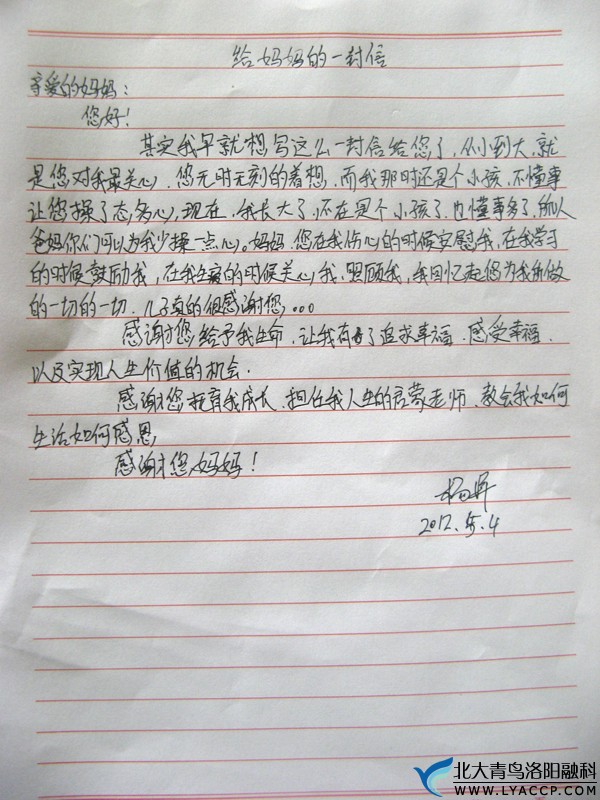 给妈妈的一封信
亲爱的妈妈：
您好！
其实我早就想写这么一封信给您了，从小到大，就
是您对我最关心，您无时无刻的着想，而我那时还是个小孩，不懂事
让您操了太多心，现在，我长大了，不在是个小孩了，也懂事多了，所以
爸妈你们可以为我少操一点心。妈妈，您在我伤心的时候安慰我，在我学习
的时候鼓励我，在我生病的时候关心我，照顾我，我回忆起您为我所做
的一切的一切，儿子真的很感谢您，...
感谢您给予我生命，让我有了追求幸福，感受幸福，
以及实现人生价值的机会．
感谢您抚育我成长，担任我人生的启蒙老师，教会我如何
生活如何感恩，
感谢您，妈妈！
杨
2012.5.4
北大青鸟洛阳融科
WWW.LYACCP.COM